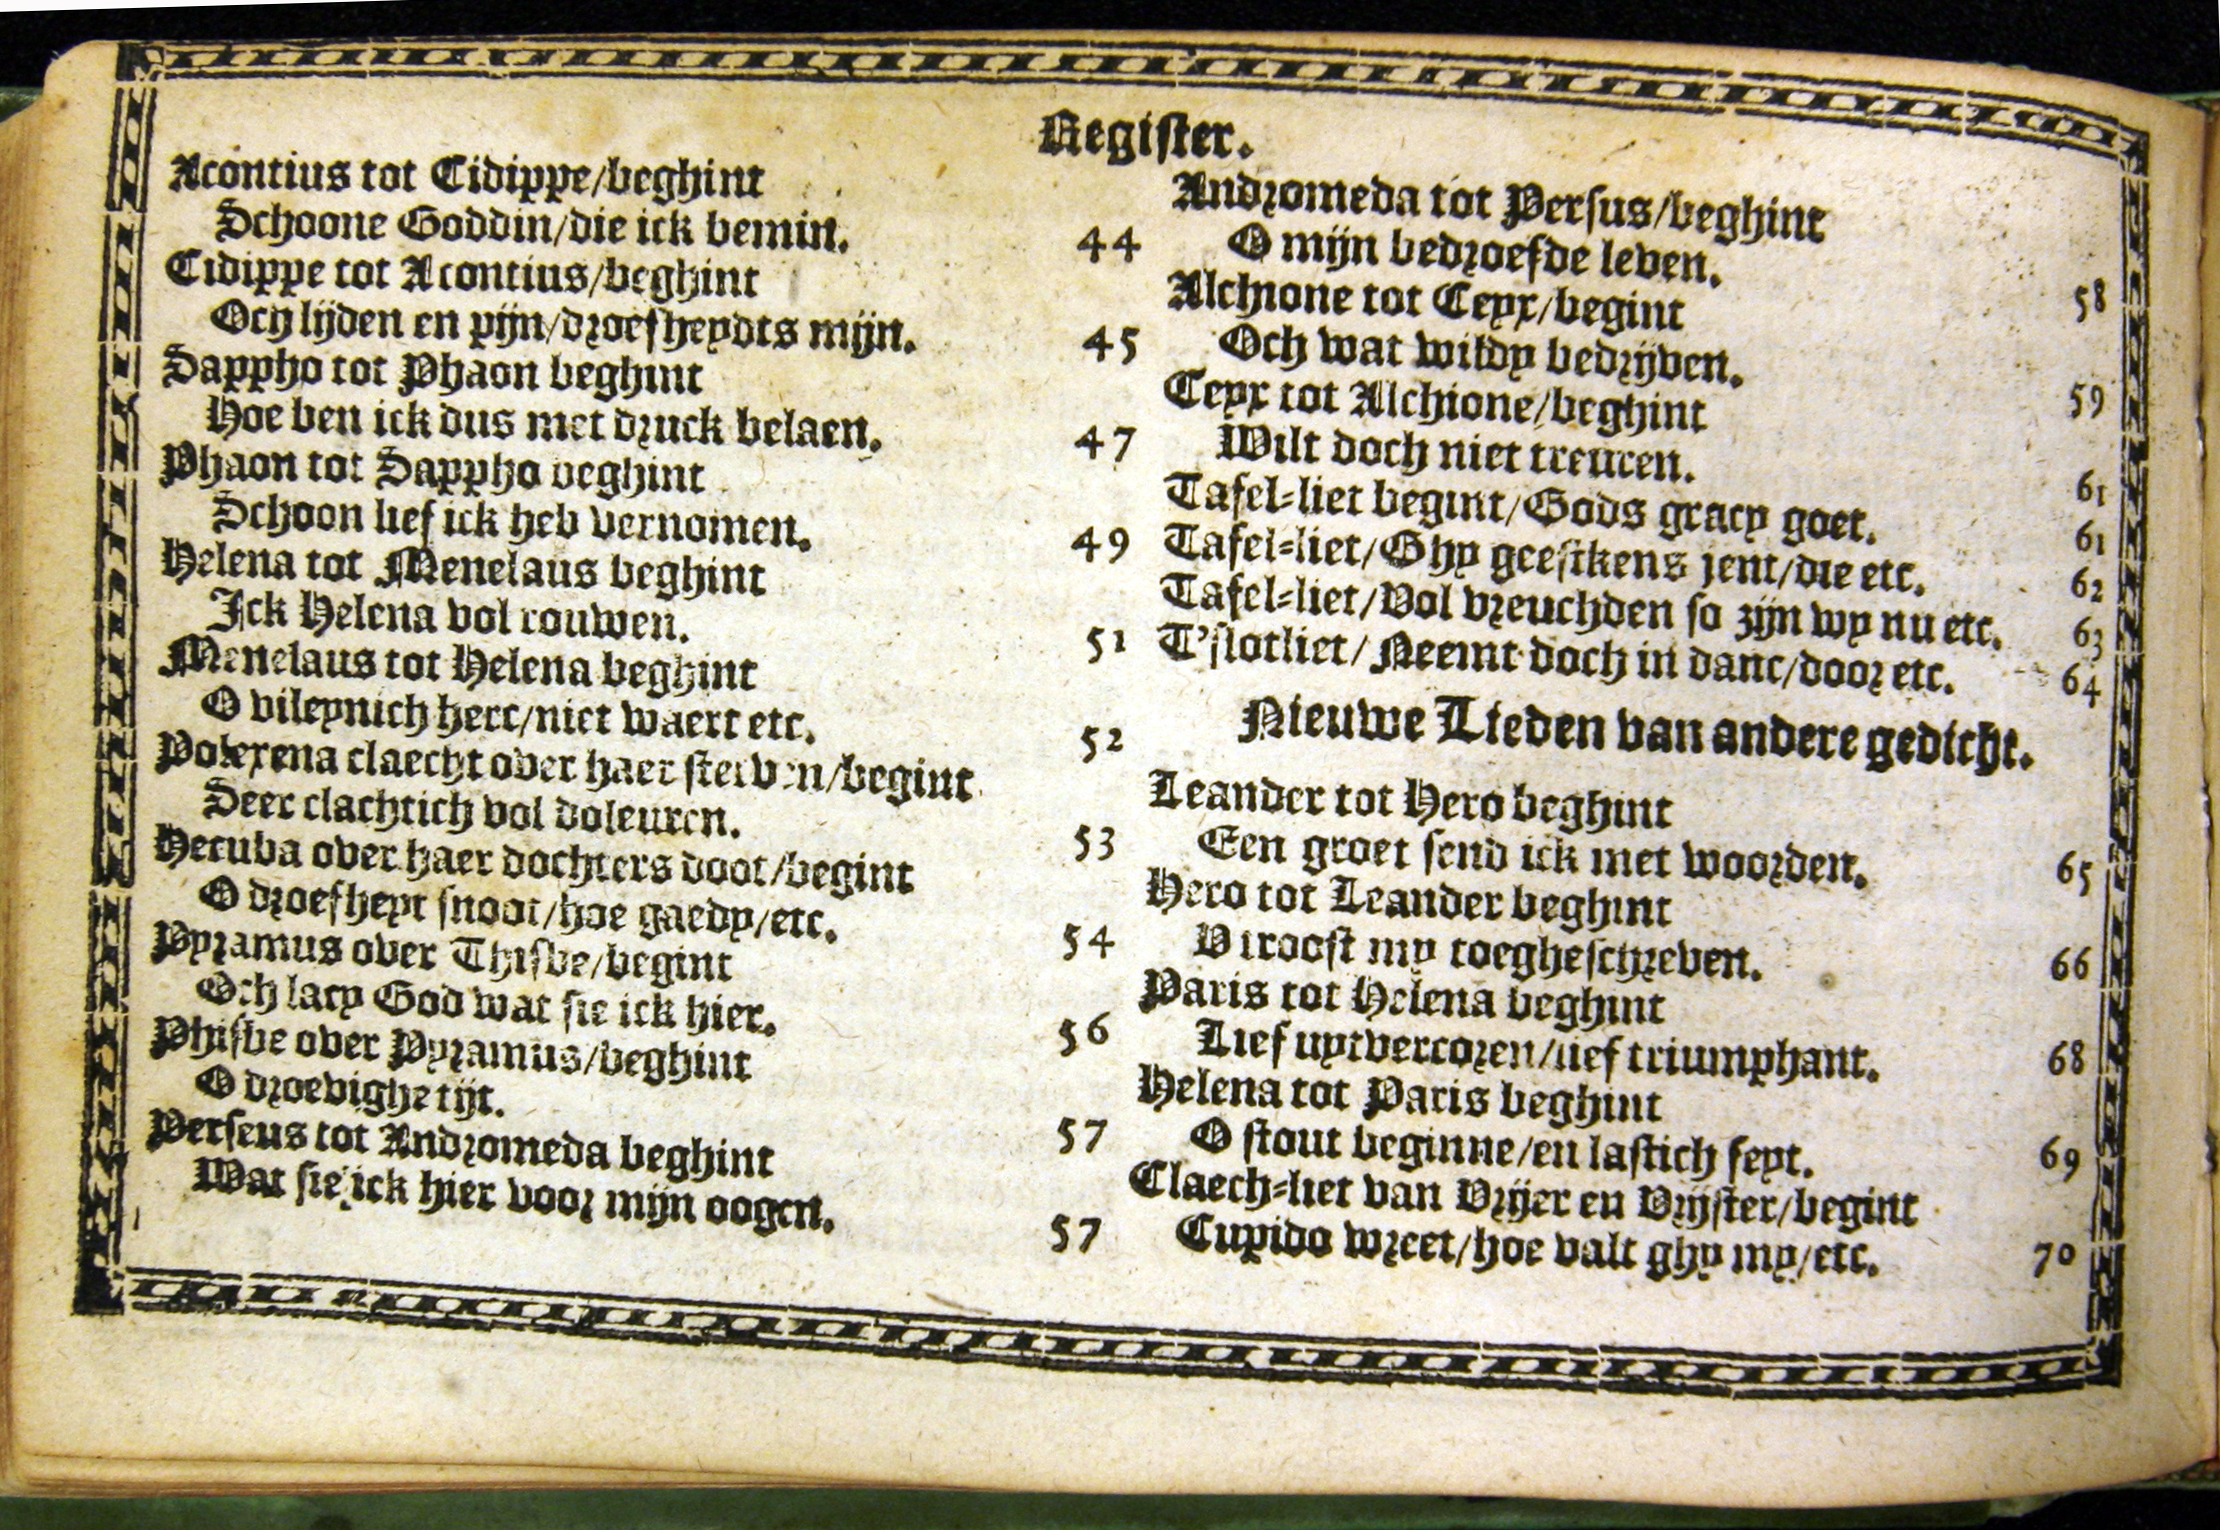 Register.
Acontius tot Cidippe/beghint
Schoone Goddin/die ick bemin. 44
Cidippe tot Acontius/beghint
Och lijden en pijn/droefheydts mijn. 45
Sappho tot Phaon beghint
Hoe ben ick dus met druck belaen. 47
Phaon tot Sappho beghint
Schoon lief ick heb vernomen. 49
Helena tot Menelaus beghint
Ick Helena vol rouwen. 51
Menelaus tot Helena beghint
O vileynich hert/niet waert etc. 52
Polexena claecht over haer sterven/begint
Seer clachtich vol doleuren. 53
Hecuba over haer dochters doot/begint
O droefheyt snoot/hoe gaedy/etc. 54
Pyramus over Thisbe/begint
Och lacy God wat sie ick hier. 56
Phisbe over Pyramus/beghint
O droevighe tijt. 57
Perseus tot Andromeda beghint
Wat sie ick hier voor mijn oogen. 57
Andromeda tot Persus/beghint
O mijn bedroefde leven. 58
Alchione tot Ceyx/begint
Och wat wildy bedrijven. 59
Ceyx tot Alchione/beghint
Wilt doch niet treuren. 61
Tafel-liet begint/Gods gracy goet. 61
Tafel-liet/Ghy geestkens jent/die etc. 62
Tafel-liet/Vol vreuchden so zijn wy nu etc. 63
T'slotliet/Neemt doch in danc/door etc. 64
Nieuwe Lieden van andere gedicht.
Leander tot Hero beghint
Een groet send ick met woorden. 65
Hero tot Leander beghint
V troost my toegheschreven. 66
Paris tot Helena beghint
Lief uytvercoren/lief triumphant. 68
Helena tot Paris beghint
O stout beginne/en lastich feyt. 69
Claech-liet van Vrijer en Vrijster/begint
Cupido wreet/hoe valt ghy my/etc. 70